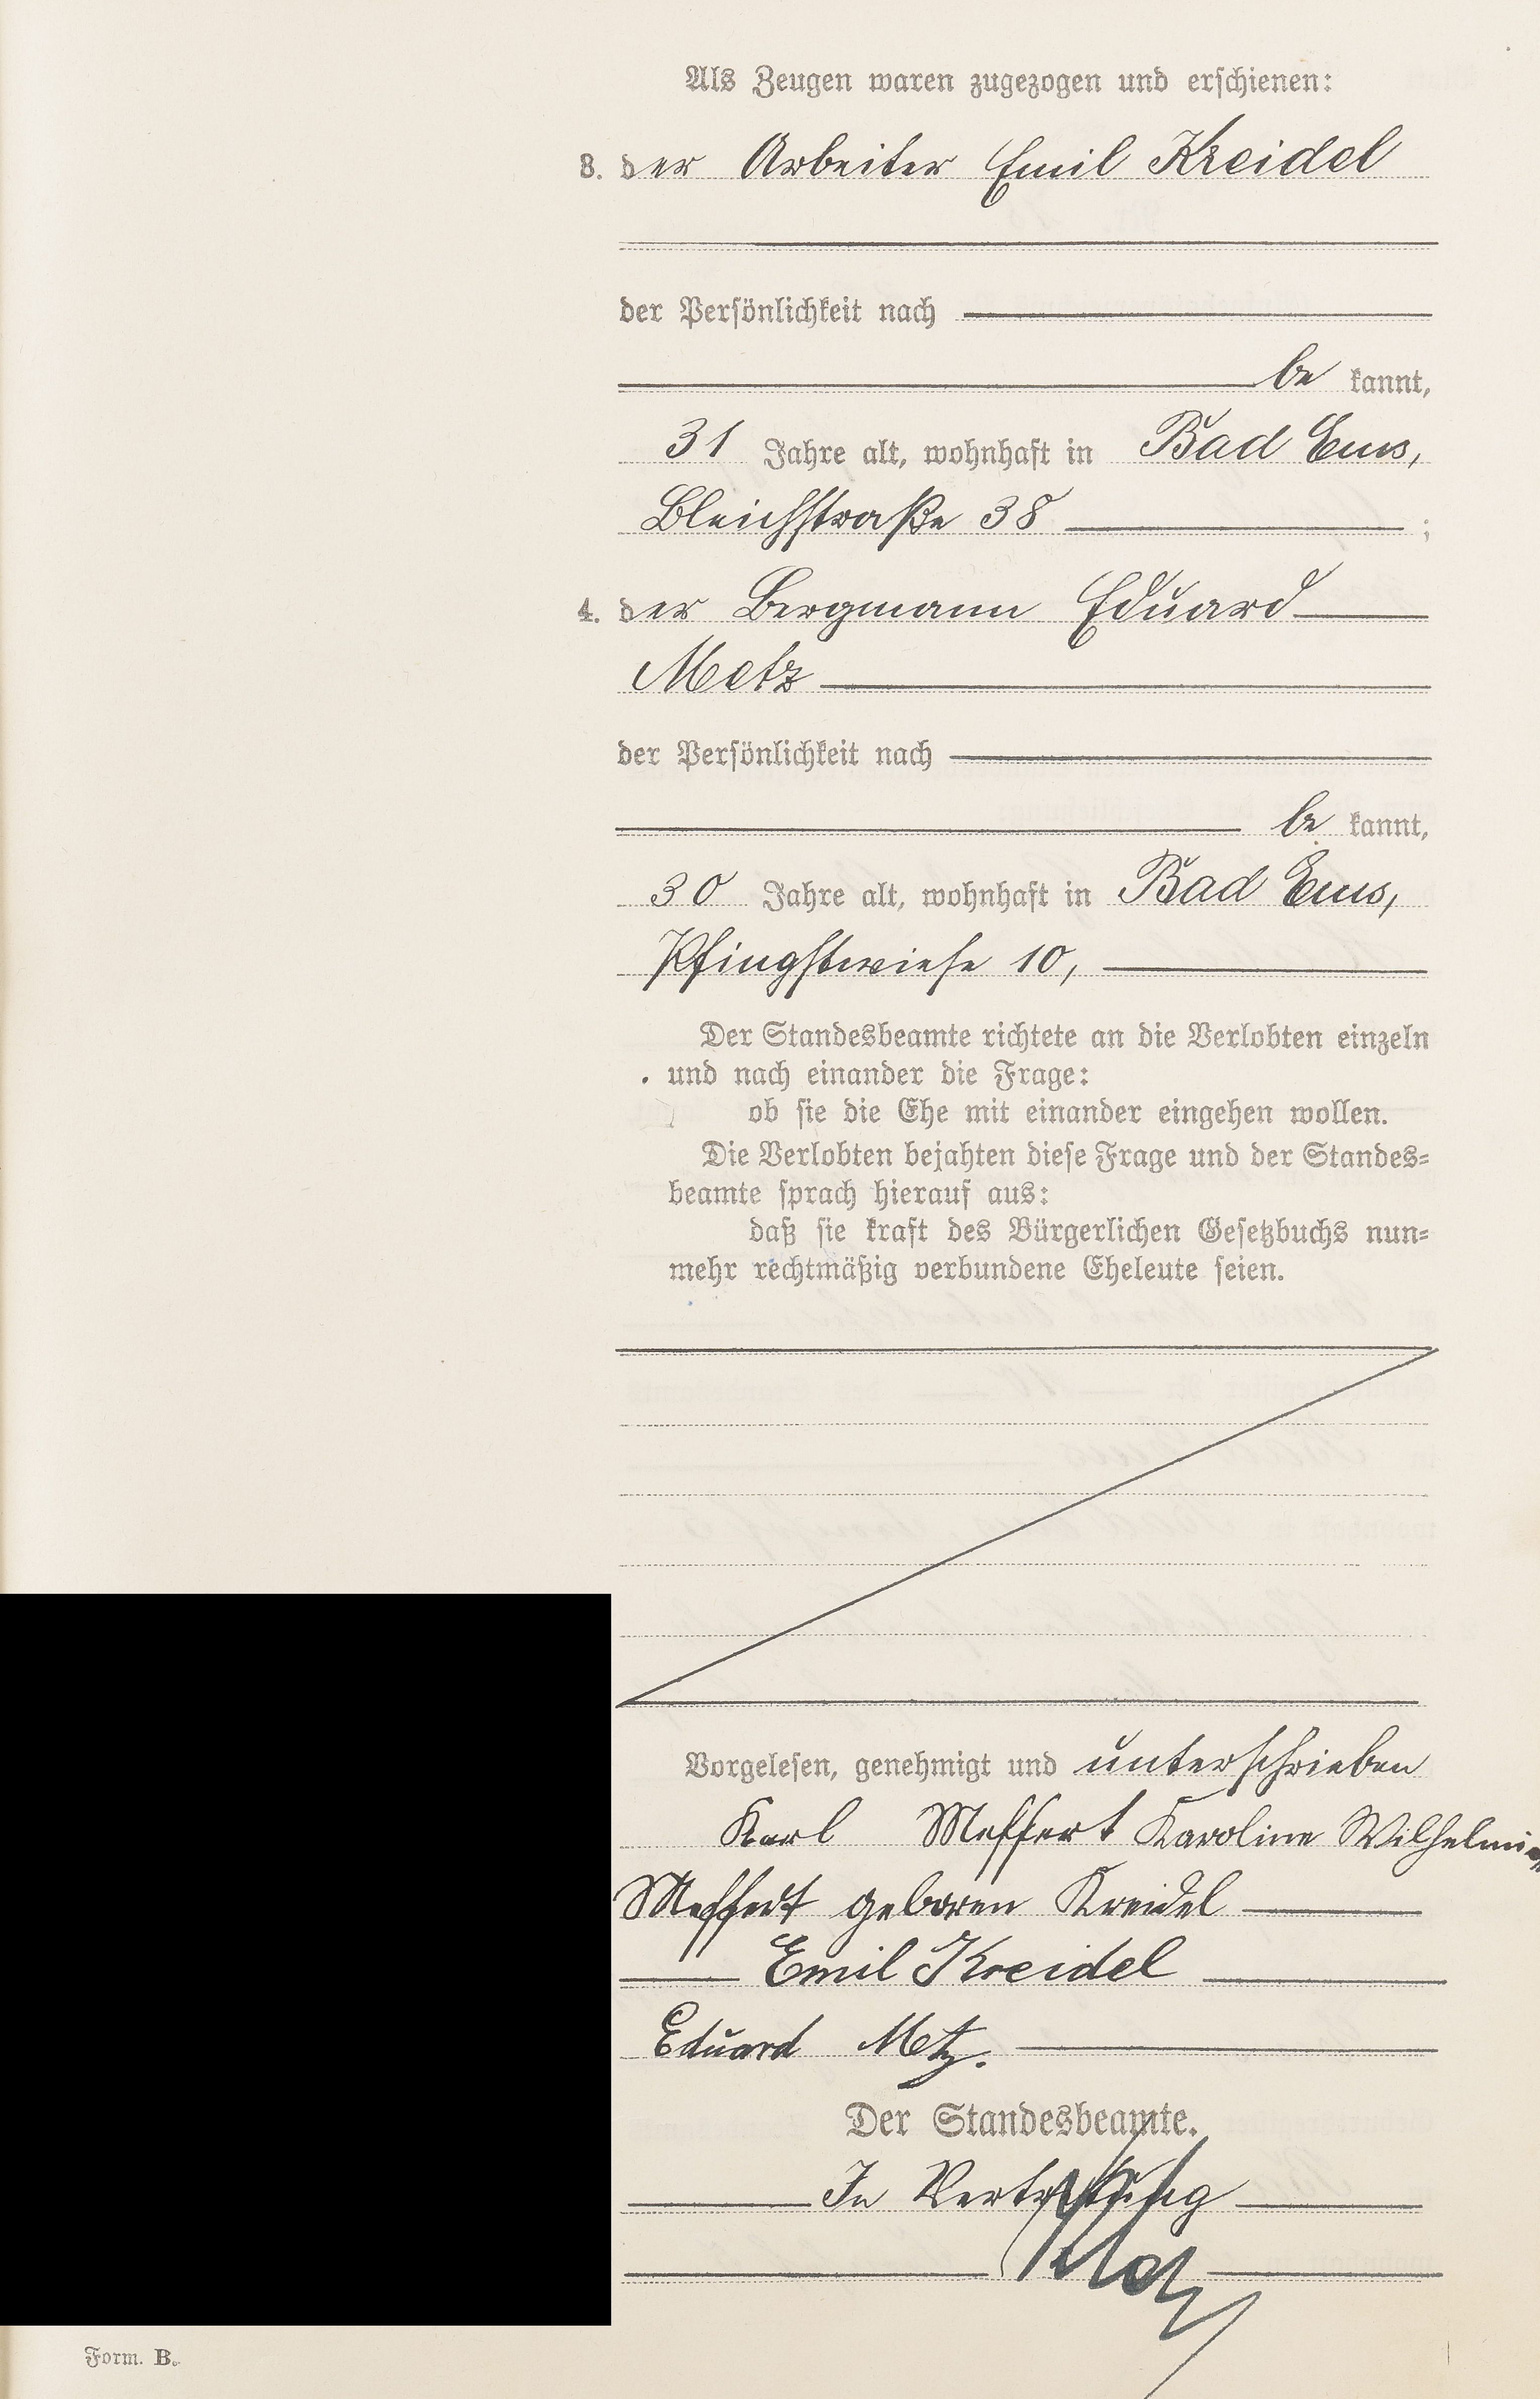 Als Zeugen waren zugezogen und erschienen:
3. der Arbeiter Emil Kreidel
der Persönlichkeit nach
be kannt,
31 Jahre alt, wohnhaft in Bad Ems,
Bleichstraße 38 ;
4. der Bergmann Eduard
Metz
der Persönlichkeit nach
be kannt,
30 Jahre alt, wohnhaft in Bad Ems,
Pfingstwiese 10,
Der Standesbeamte richtete an die Verlobten einzeln
und nach einander die Frage:
ob sie die Ehe mit einander eingehen wollen.
Die Verlobten bejahten diese Frage und der Standes=
beamte sprach hierauf aus:
daß sie kraft des Bürgerlichen Gesetzbuchs nun=
mehr rechtmäßig verbundene Eheleute seien.
Vorgelesen, genehmigt und unterschrieben
Karl Meffert Karoline Wilhelmine
Meffert geboren Kreidel
Emil Kreidel
Eduard Metz.
Der Standesbeamte.
In Vertretung
Form. B.